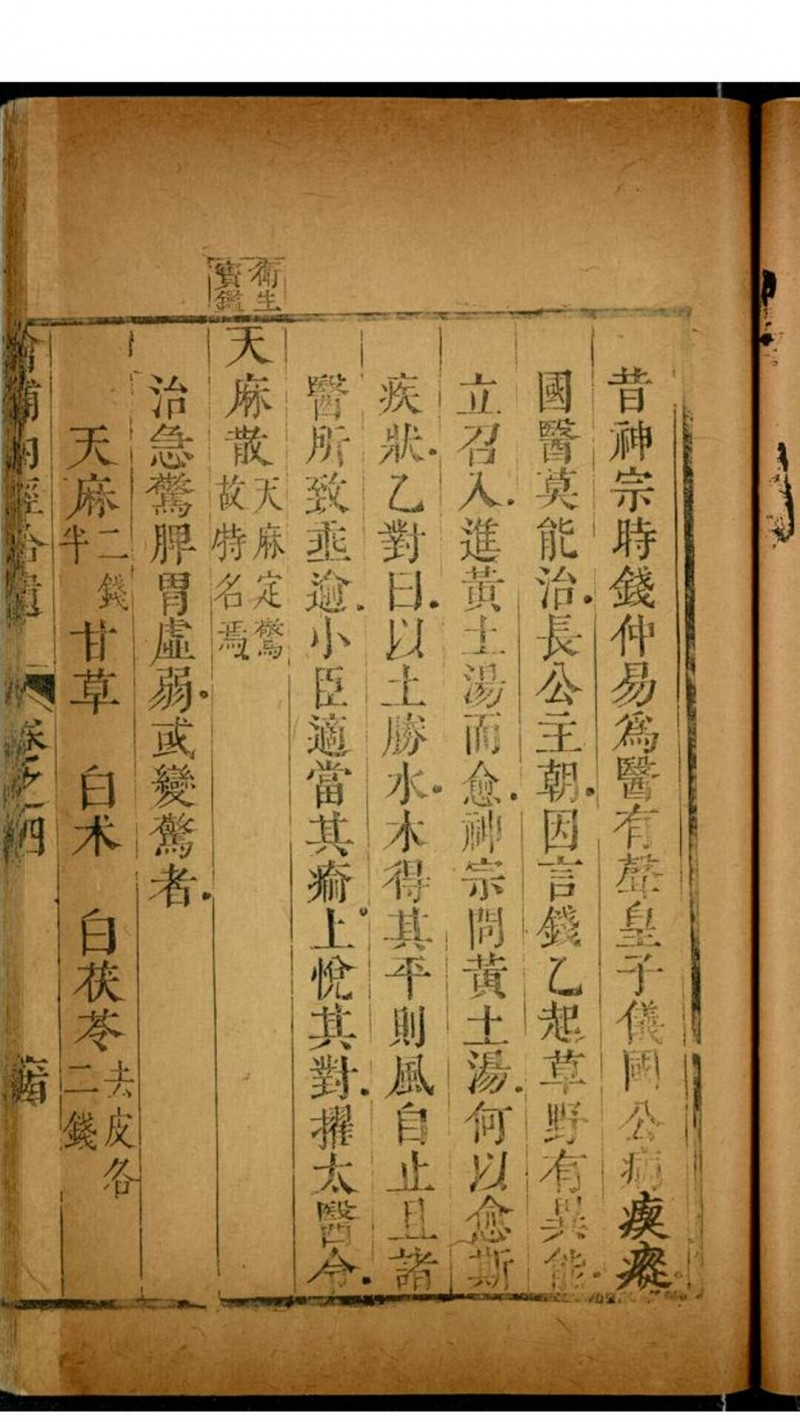 昔神宗時錢仲易爲醫有聲皇子儀國公病瘈瘲
國醫莫能治．長公主朝．因言錢乙起草野有異能．
立召入．進黃土湯而愈．神宗問黃土湯．何以愈斯
疾狀．乙對曰．以土勝水．木得其平則風自止且諸
醫所致垂逾．小臣適當其瘉。上悅其對．擢太醫令．
衛生
寶鑑
天麻散天麻定驚
故特名焉
治急驚脾胃虛弱．或變驚者．
天麻二錢
半　甘草　白术　白茯苓去皮各
二錢
補內經拾遺　卷之四